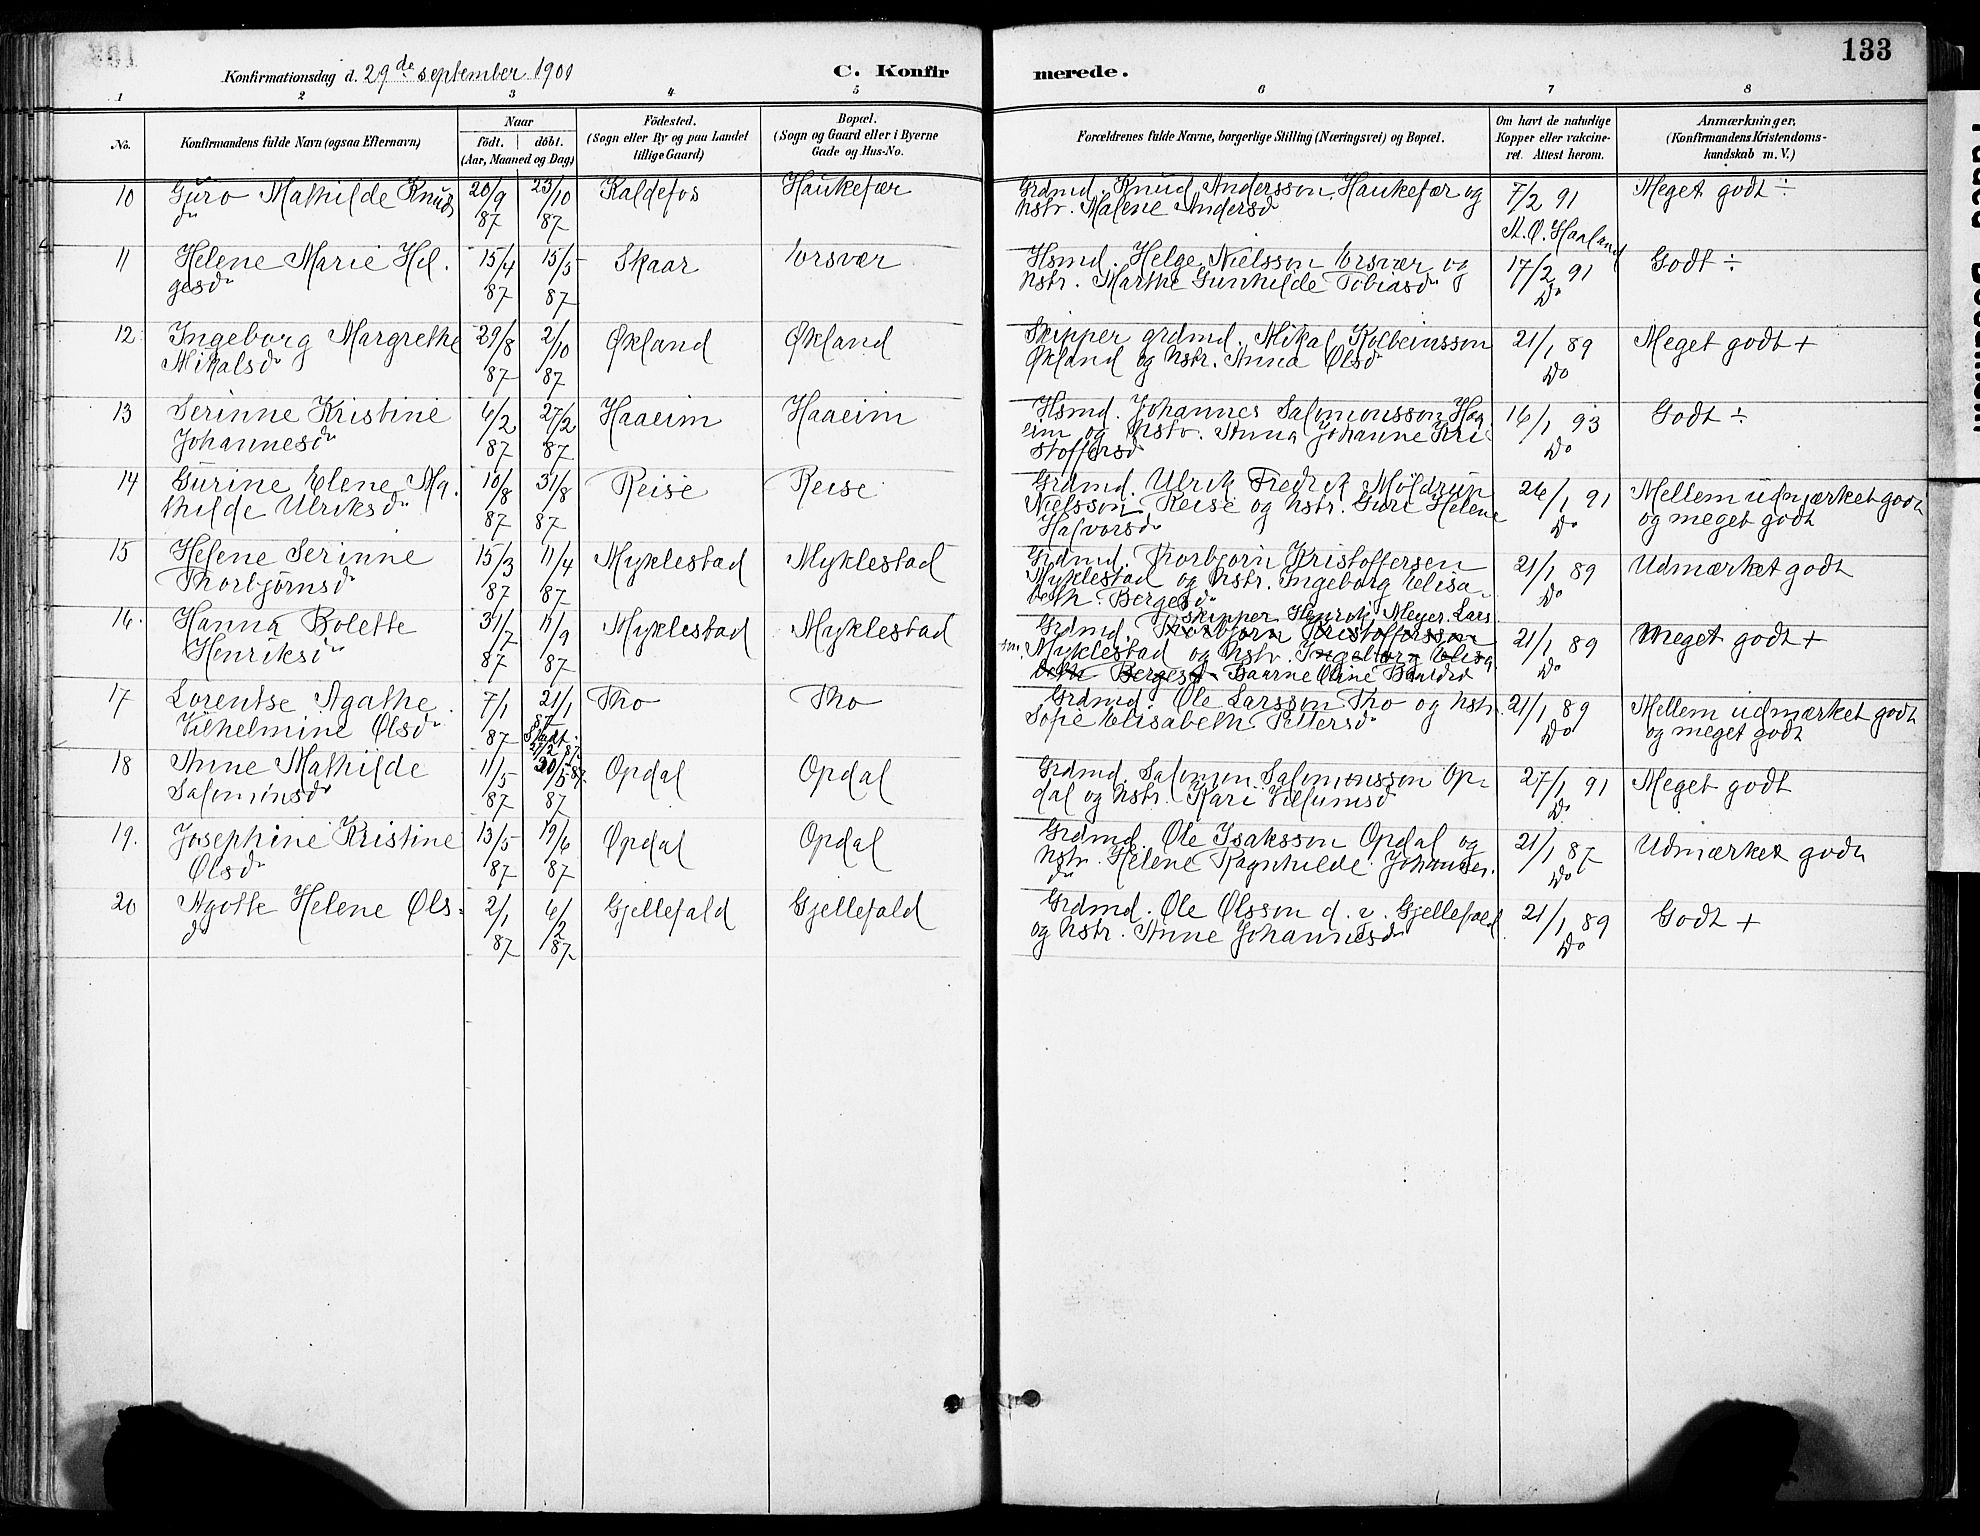 133
Konfirmationsdag d. 29de september 1901
C. Konfirmerede.
1 2 3 4 5 6 7 8
No.
Konfirmandens fulde Navn (ogsaa Efternavn)
Naar
födt. döbt.
(Aar, Maaned og Dag)
Födested.
(Sogn eller By og paa Landet
tillige Gaard)
Bopæl.
(Sogn og Gaard eller i Byerne
Gade og Hus-No.
Forældrenes fulde Navne, borgerlige Stilling (Næringsvei) og Bopæl.
Om havt de naturlige
Kopper eller vakcine-
ret. Attest herom.
Anmærkninger,
(Konfirmandens Kristendoms-
kundskab m. V.)
10 Guro Mathilde Knuds 20/9 23/10 Kaldefos Haukefær Grdmd. Knud Andersson Haukefær og 7/2 91 Meget godt ÷
dr 87 87 hstr. Malene Andersd A. O. Haaland
11 Helene Marie Hel. 15/4 15/5 Skaar Ersvær Hsmd. Helge Nielsson Ersvær og 17/2 91 Godt ÷
gesdr 87 87 hstr. Marthe Gunhilde Tobiasdr Do
12 Ingeborg Margrethe 29/8 2/10 Økland Økland Skipper grdmd. Mikal Kolbeinsson 21/1 89 Meget godt +
Mikalsdr 87 87 Økland og hstr. Anna Olsdr Do
13 Serinne Kristine 6/2 27/2 Haaeim Haaeim Hsmd. Johannes Salomonsson Haa 16/1 93 Godt ÷
Johannesdr 87 87 eim og hstr. Anna Johanne Kri Do
stoffersd
14 Gurine Elene Ma. 10/8 31/8 Reise Reise Grdmd. Ulrik Fredrik Möldrup
thilde Ulriksdr 87 87 Nielsson Reise og hstr. Guri Helene 26/1 91 Mellem udmærket godt
Halvorsdr Do og meget godt
15 Helene Serinne 15/3 11/4 Myklestad Myklestad Grdmd. Thorbjørn Kristoffersen 21/1 89 Udmærket godt
Thorbjørnsdr 87 87 Myklestad og hstr. Ingeborg Elisa- Do
beth Bergesdr
16. Hanna Bolette 31/7 11/9 Myklestad Myklestad skipper Henrik Meyer Lars
Henriksdr 87 87 Grdmd. Thorbjørn Kristoffersson 21/1 89 Meget godt +
Myklestad og hstr. Ingeborg Elisa Do
beth Bergesd
17 Lorentse Agathe 7/1 21/1 Tho Tho Grdmd. Ole Larsson Tho og hstr. 21/1 89 Mellem udmærket godt
Vilhelmine Olsdr 87 87 Sofie Elisabeth Pettersdr Do og meget godt
Stadf.
27/2 87
18 Anne Mathilde 11/5 30/5 Opdal Opdal Grdmd. Salomon Salomonsson Op- 27/1 91 Meget godt
Salomonsdr 87 87 dal og hstr. Kari Do
19. Josephine Kristine 13/5 19/6 Opdal Opdal Grdmd. Ole Isaksson Opdal og 21/1 87 Udmærket godt
Olsdr 87 87 hstr. Helene Ragnhilde Johannes. Do
dr
20 Agotte Helene Ols- 2/1 6/2 Gjellefald Gjellefald Grdmd. Ole Olsson d. æ. Gjellefald 21/1 89 Godt +
dr 87 87 og hstr. Anne Johannesdr Do